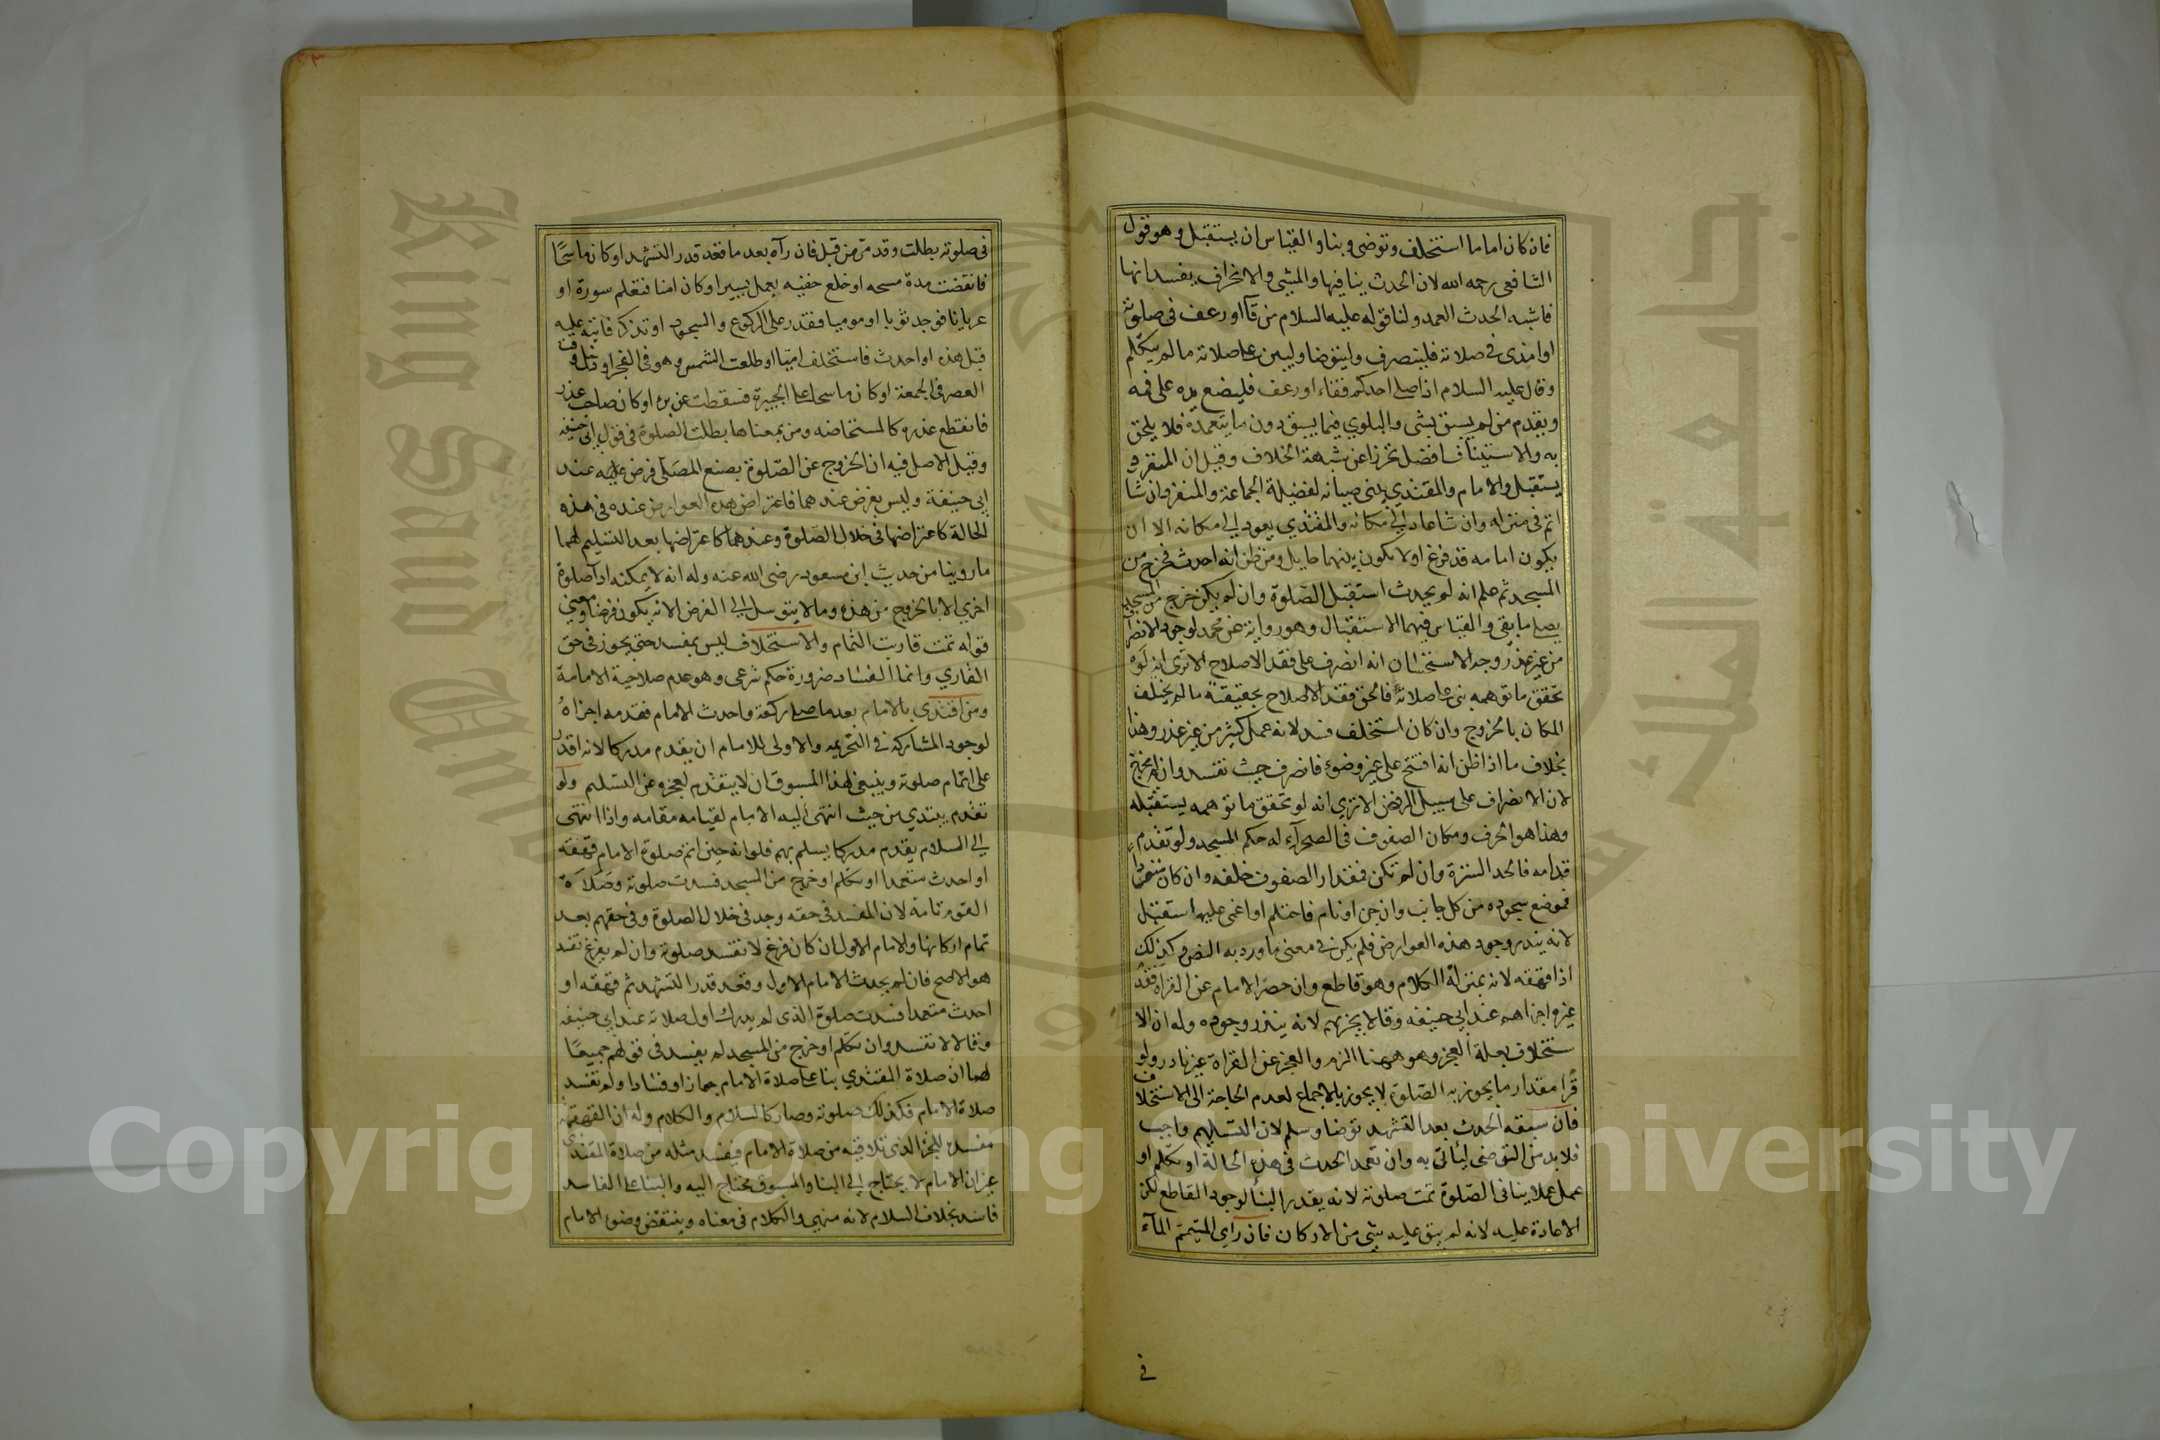 فان كان اماما استخلف وتوضى وبنا والقياس ان يستقبل وهو قول
الشافعى رحمه الله لان الحدث ينافيها والمشى والانحراف يفسدانها
فاشبه الحدث العمد ولنا قوله عليه السلام من قآ او رعف فى صلوته
او امذى فى صلاته فلينصرف وليتوضا وليبن على صلاته ما لم يتكلم
وقال عليه السلام اذا صلى احدكم فقاء او رعف فليضع يده على فمه
ويقدم من لم يسبق بشى والبلوي فيما يسبق دون ما يتعمده فلا يلحق
به والاستيناف افضل تحرزا عن شبهة الخلاف وقيل ان المنفرد
يستقبل والامام والمقتدي يبنى صيانه لفضيلة الجماعة والمنفرد ان شا
اتم فى منزله وان شا عاد الى مكانه والمقتدي يعود الى مكانه الا ان
يكون امامه قد فرغ او لا يكون بينهما حايل ومن ظن انه احدث فخرج من
المسجد ثم علم انه لم يحدث استقبل الصلوة وان لم يكن خرج من المسجد
يصلى ما بقى والقياس فيهما الاستقبال وهو رواية عن محمد لوجود الانصراف
من غير عذر وجه الاستحسان انه انصرف على قصد الاصلاح الا ترى انه لو
تحقق ما توهمه بنى على صلاته فالحق قصد الاصلاح بحقيقته ما لم يختلف
المكان بالخروج وان كان استخلف فسد لانه عمل كثير من غير عذر وهذا
بخلاف ما اذا ظن انه افتتح على غير وضوء فانصرف حيث تفسد وان لم يخرج
لان الانصراف على سبيل الرفض الا تري انه لو تحقق ما توهمه يستقبله
وهذا هو الحرف ومكان الصفوف فى الصحرآء له حكم المسجد ولو تقدم
قدامه فالحد السترة وان لم تكن فمقدار الصفوف خلفه وان كان منفردا
فموضع سجوده من كل جانب وان جن او نام فاحتلم او اغمى عليه استقبل
لانه يندر وجود هذه العوارض فلم يكن فى معنى ما ورد به النص وكذلك
اذا قهقه لانه بمنزلة الكلام وهو قاطع وان حصر الامام عن القراة فقدم
غيره اجزاهم عند ابى حنيفه وقالا لا يجزيهم لانه يندر وجوده وله ان الا
ستخلاف بعلة العجز وهو ههنا الزم والعجز عن القراة غير نادر ولو
قرا مقدار ما يجوز به الصلوة لا يجوز بالاجماع لعدم الحاجة الى الاستخلاف
فان سبقه الحدث بعد التشهد توضا وسلم لان التسليم واجب
فلا بد من التوضى ليأتى به وان تعمد الحدث فى هذه الحالة او تكلم او
عمل عملا ينافى الصلوة تمت صلوته لانه يقدر البنا لوجود القاطع لكن
لا اعادة عليه لانه لم يبق عليه شى من الاركان فان راي المتيمم المآء
فى
فى صلوته بطلت وقد مر من قبل فان رآه بعد ما قعد قدر التشهد او كان ماسحا
فانقضت مدة مسحه او خلع خفيه بعمل يسير او كان اميا فتعلم سورة او
عريانا فوجد ثوبا او موميا فقدر على الركوع والسجود او تذكر فايتة عليه
قبل هذه او احدث فاستخلف اميا او طلعت الشمس وهو فى الفجر او دخل وقت
العصر فى الجمعة او كان ماسحا على الجبيرة فسقطت عن برء او كان صاحب عذر
فانقطع عذره كالمستحاضه ومن بمعناها بطلت الصلوة فى قول ابى حنيفه
وقيل الاصل فيه ان الخروج عن الصلوة بصنع المصلى فرض عليه عند
ابى حنيفة وليس بفرض عندهما فاعتراض هذه العوارض عنده فى هذه
الحالة كاعتراضها فى خلال الصلوة وعندهما كاعتراضها بعد التسليم لهما
ما روينا من حديث ابن مسعود رضى الله عنه وله انه لا يمكنه ادآ صلوة
اخري الا بالخروج من هذه وما لا يتوسل الى الفرض الا به يكون فرضا ومعنى
قوله تمت قاربت التمام والاستخلاف ليس بمفسد حتى يجوز فى حق
القاري وانما الفساد ضرورة حكم شرعى وهو عدم صلاحية الامامة
ومن اقتدى بالامام بعد ما صلى ركعة واحدث الامام فقدمه اجزاه
لوجود المشاركه فى التحريمه والاولى للامام ان يقدم مدركا لانه اقدر
على اتمام صلوته وينبغى لهذا المسبوق ان لا يتقدم لعجزه عن التسليم ولو
تقدم يبتدي من حيث انتهى اليه الامام لقيامه مقامه واذا انتهى
الى السلام يقدم مدركا يسلم بهم فلو انه حين اتم صلوة الامام قهقه
او احدث متعمدا او تكلم او خرج من المسجد فسدت صلوته وصلاة
القوم تامة لان المفسد فى حقه وجد فى خلال الصلوة وفى حقهم بعد
تمام اركانها والامام الاول ان كان فرغ لا تفسد صلوته وان لم يفرغ تفسد
هو الاصح فان لم يحدث الامام الاول وقعد قدر التشهد ثم قهقه او
احدث متعمدا فسدت صلوة الذى لم يدرك اول صلاته عند ابى حنيفه
وقالا لا تفسد وان تكلم او خرج من المسجد لم يفسد فى قولهم جميعا
لهما ان صلاة المقتدي بنا على صلاة الامام جوازا وفسادا ولم تفسد
صلاة الامام فكذلك صلوته وصار كالسلام والكلام وله ان القهقهة
مفسدة للجزء الذى تلاقيه من صلاة الامام فيفسد مثله من صلاة المقتدى
غير ان الامام لا يحتاج الى البنا والمسبوق محتاج اليه والبنا على الفاسد
فاسد بخلاف السلام لانه منهى والكلام فى معناه وينتقض وضوء الامام
King Saud University
جامعة الملك سعود
Copyright © King Saud University